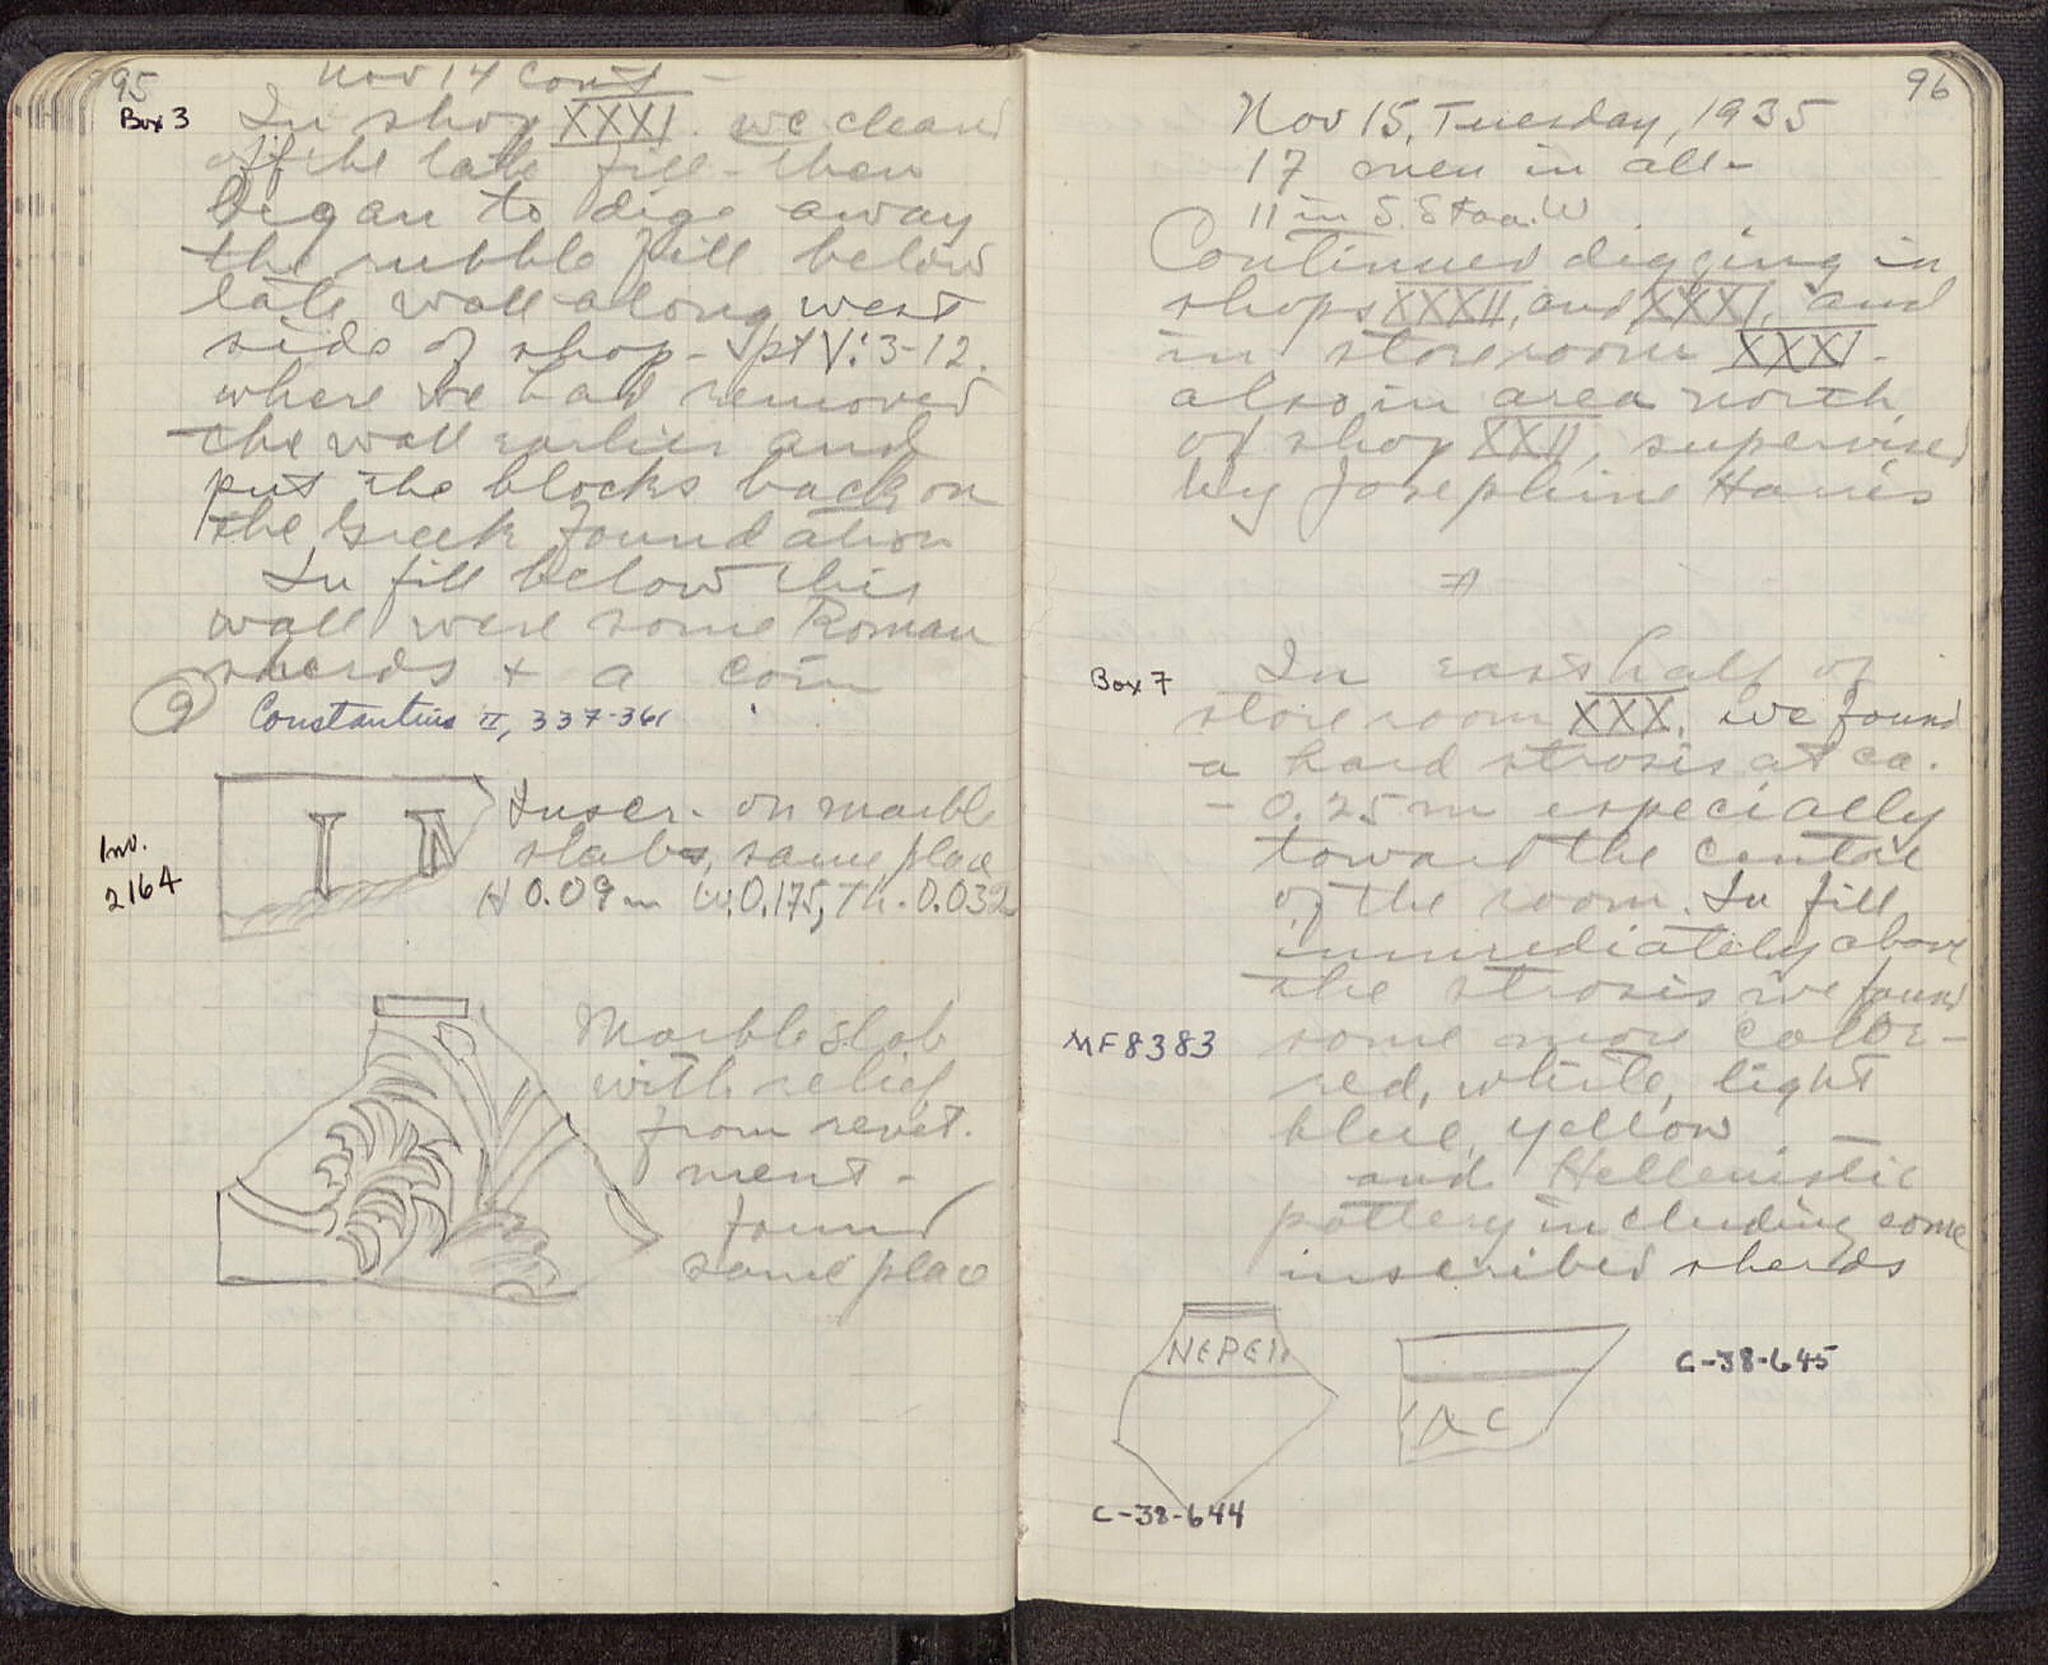 95
Nov 14 Cont -
Box 3
In shop XXXI. we cleared
off the late fill - then
began to dig away
the rubble fill below
late wall along west
side of shop - pt V: 3-12.
where we had removed
the wall earlier and
put the blocks back on
the Greek foundation
In fill below this
wall were some Roman
sherds + a coin
9 Constantius II, 337-361
Inv.
2164
Inscr. on marble
slab, same place
H 0.09m W. 0.175, Th. 0.032
Marble slab
with relief
from revet.
ment -
found
same place
96
Nov 15, Tuesday, 1935
17 men in all -
11 in S. Stoa. W
Continued digging in
shops XXXII, and XXXI, and
in storeroom XXXI -
also in area north
of shop XXII, supervised
by Josephine Harris
Box 7
In east half of
storeroom XXX, we found
a hard strosis at ca.
- 0.25m especially
toward the center
of the room. In fill
immediately above
the strosis we found
MF 8383
some more color -
red, white, light
blue, yellow -
and Hellenistic
pottery including some
inscribed sherds
ΝΕΡΕΙ
ΑC
C-38-645
C-38-644